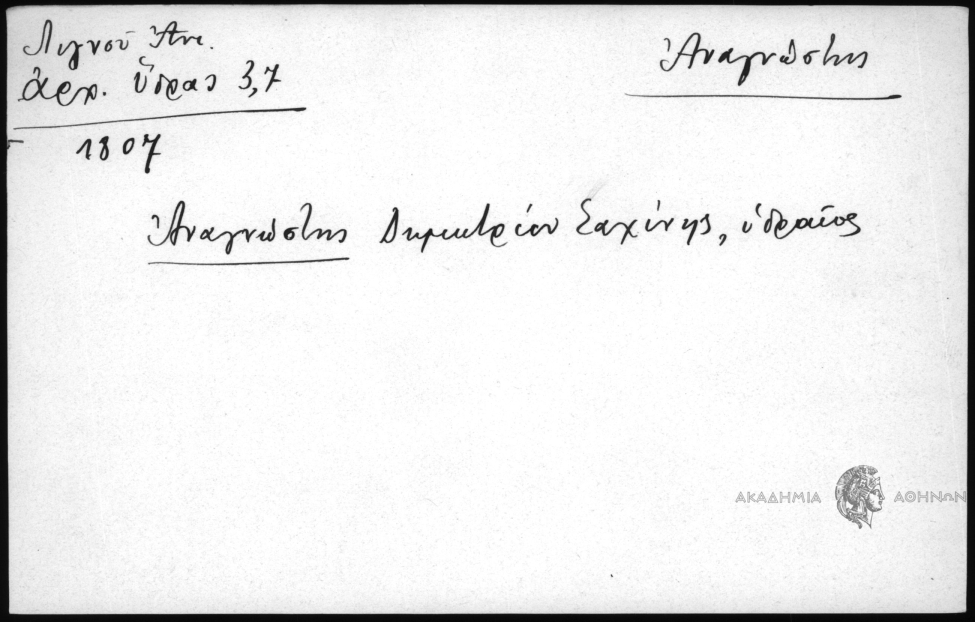 Λιγνοῦ Ἀντ.
ἀρχ. Ὕδρας 3,7
1807
Ἀναγνώστης
Ἀναγνώστης Δημητρίου Σαχίνης, ὑδραῖος
ΑΚΑΔΗΜΙΑ ΑΘΗΝΩΝ